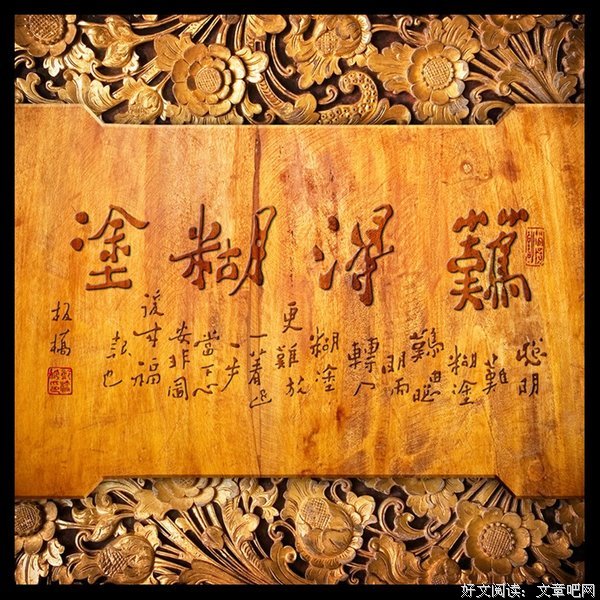 難得糊塗
聰明
難
糊塗
難由聰
明而
轉入
糊塗
更難放
一著退
一步
當下心
安非圖
後來福
報也
板橋
好文阅读：文章吧网